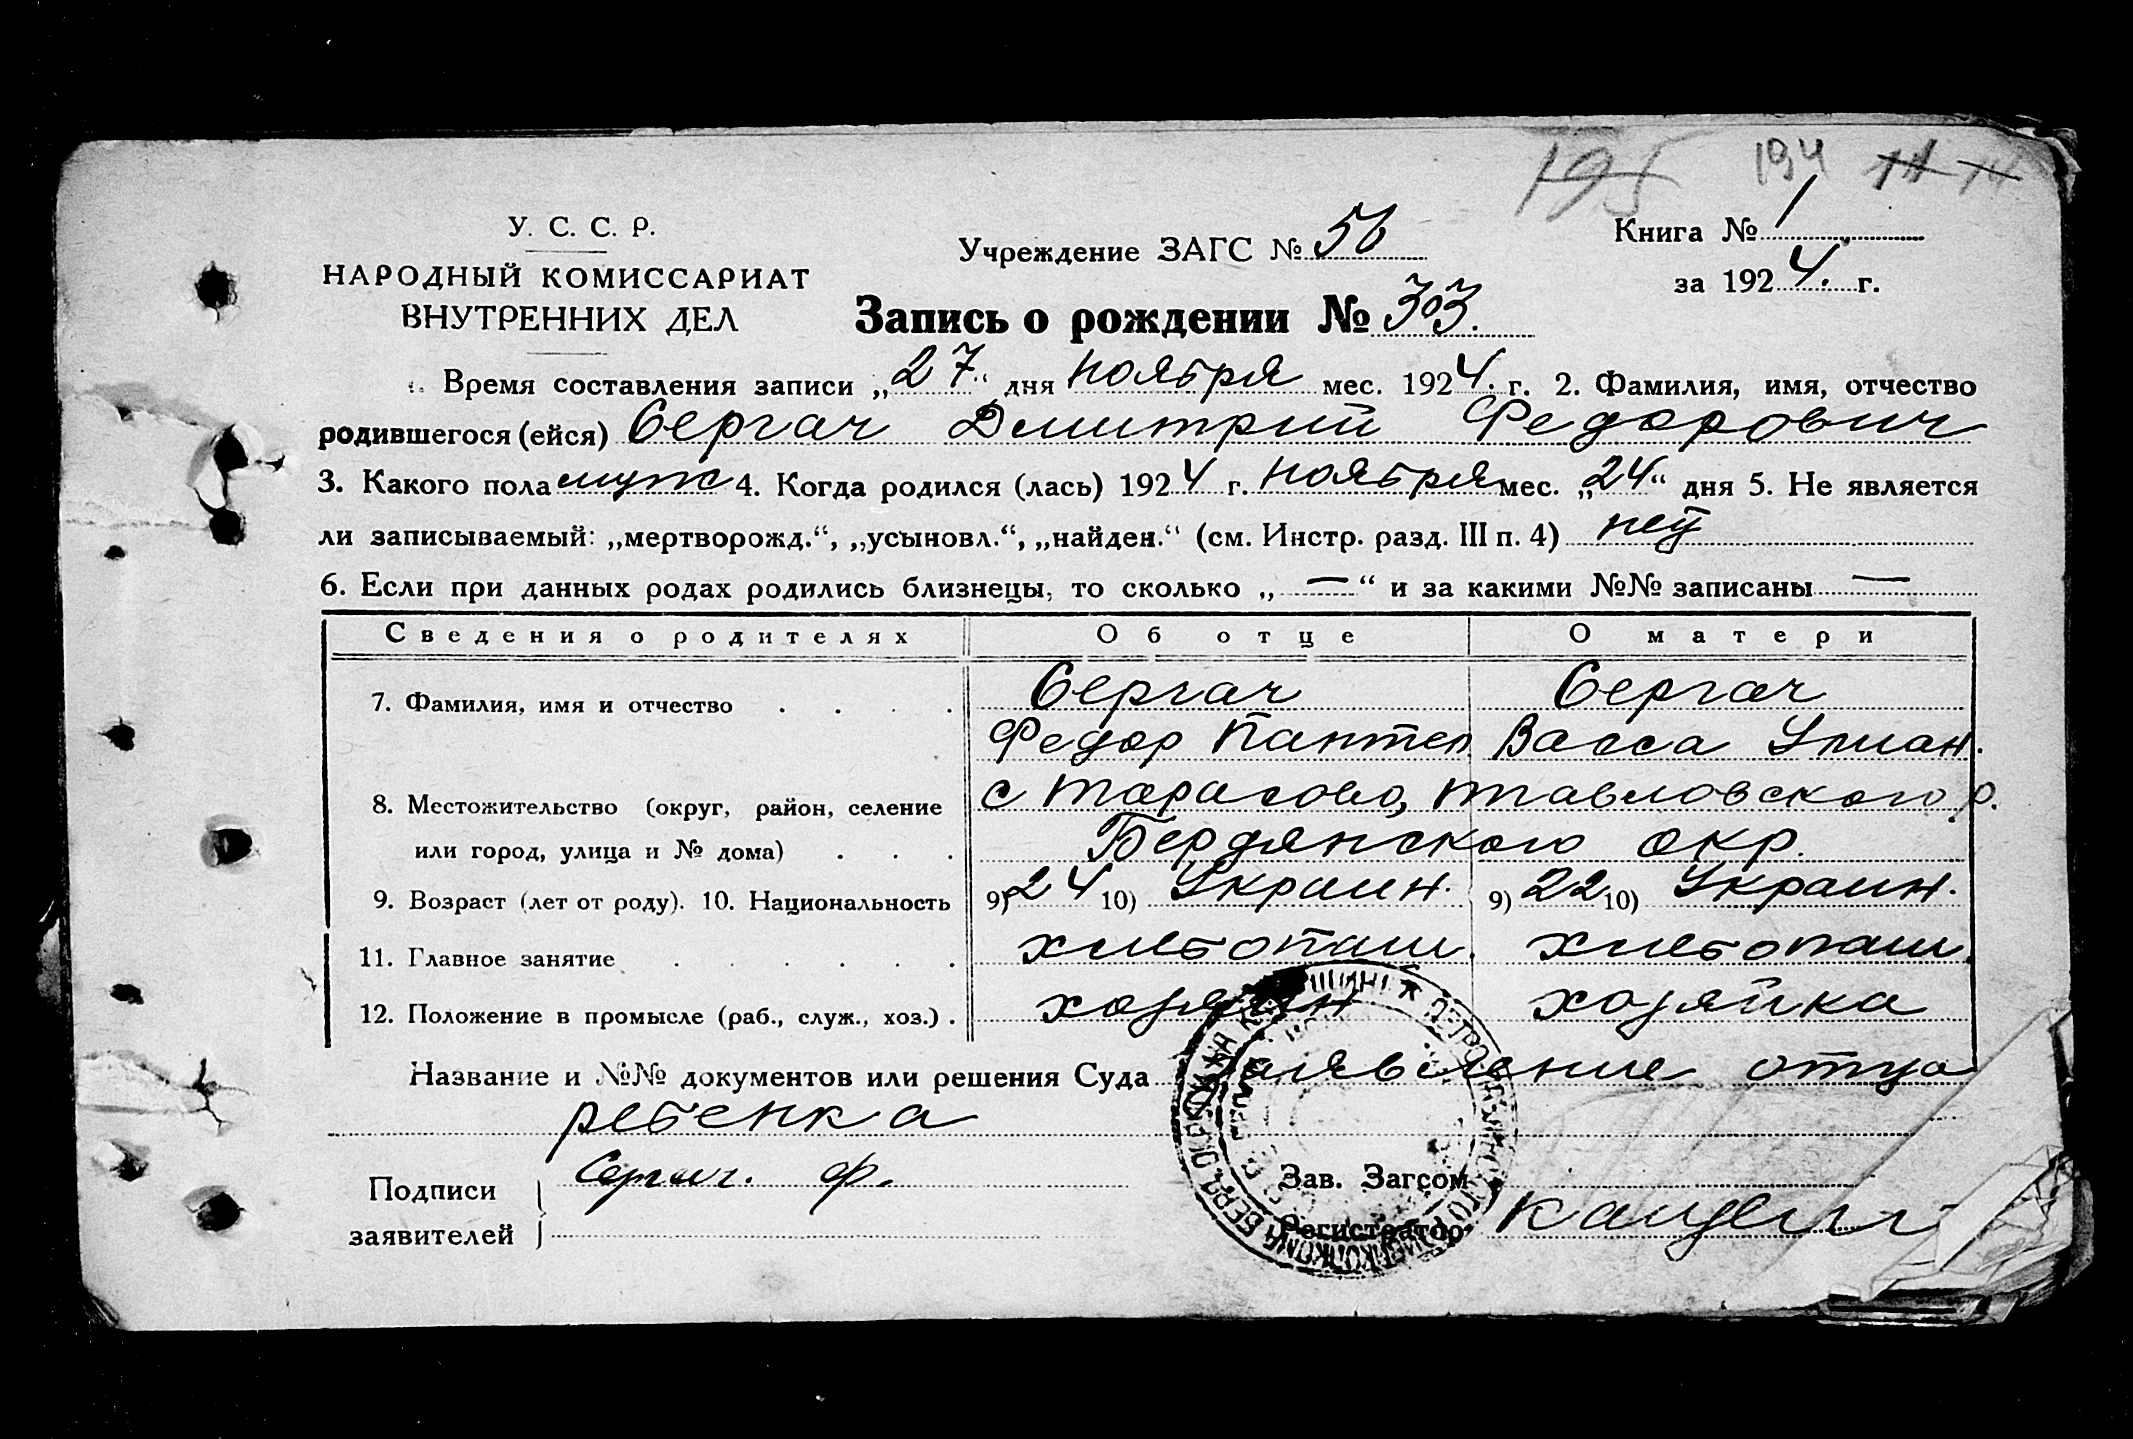 195 194 14 14
У. С. С. Р.
НАРОДНЫЙ КОМИССАРИАТ
ВНУТРЕННИХ ДЕЛ
Учреждение ЗАГС № 56
Книга № 1
за 1924. г.
Запись о рождении № 303.
Время составления записи „27“ дня ноября мес. 1924. г. 2. Фамилия, имя, отчество
родившегося (ейся) Сергач Дмитрий Федорович
3. Какого пола муж 4. Когда родился (лась) 1924 г. ноября мес. „24“ дня 5. Не является
ли записываемый: „мертворожд.“, „усыновл.“, „найден.“ (см. Инстр. разд. III п. 4) нет
6. Если при данных родах родились близнецы, то сколько „—“ и за какими №№ записаны —
Сведения о родителях Об отце О матери
7. Фамилия, имя и отчество . . . . Сергач Сергач
Федор Пантел Васса Улиан.
8. Местожительство (округ, район, селение с Тарасово, р.
или город, улица и № дома) . . . Бердянского окр.
9. Возраст (лет от роду). 10. Национальность 9) 24 10) Украин. 9) 22 10) Украин.
11. Главное занятие . . . . . . хлебопаш. хлебопаш.
12. Положение в промысле (раб., служ., хоз.) . хозяин хозяйка
Название и №№ документов или решения Суда заявление отца
ребенка
Подписи Сергач. Ф. Зав. Загсом
заявителей Регистратор